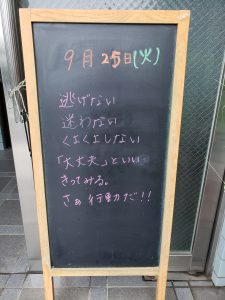 9月25日(火)
逃げない
迷わない
くよくよしない
「大丈夫」といい
きってみる。
さぁ 行動力だ!!